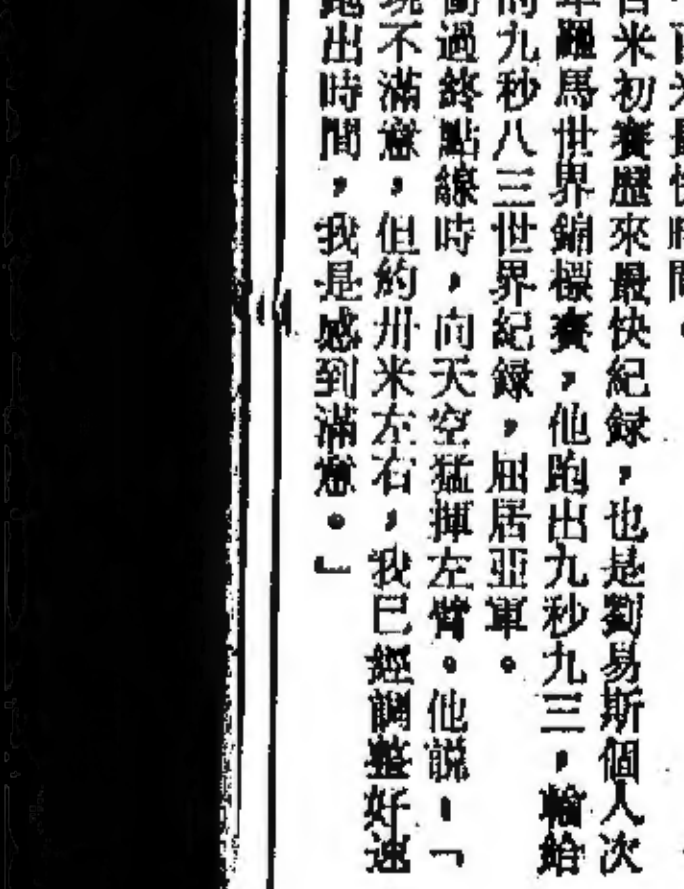 百米最快時間。
百米初賽歷來最快紀録，也是劉易斯個人次
羅馬世界錦標賽，他跑出九秒九三，輸給
的九秒八三世界紀録，屈居亞軍。
衝過終點線時，向天空猛揮左臂。他説：「
不滿意，但約卅米左右，我已經調整好速
跑出時間，我是感到滿意。」